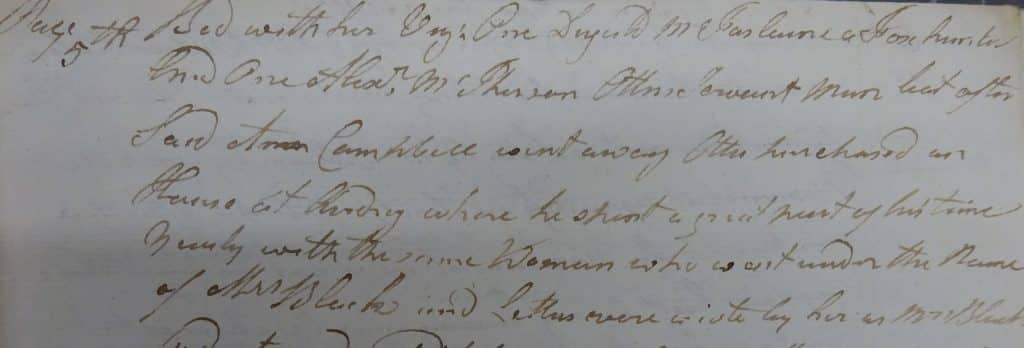 Page 5th Bed with her Viz: One Dugald McFarlaine a Foxhunter
And One Alexr. McPherson Otters Servant Man but after
Said Ann Campbell went away Otter purchased an
House at where he spent a great part of his time
Yearly with the same Woman who went under the Name
of Mrs Black and Letters were wrote by her as Mrs Black